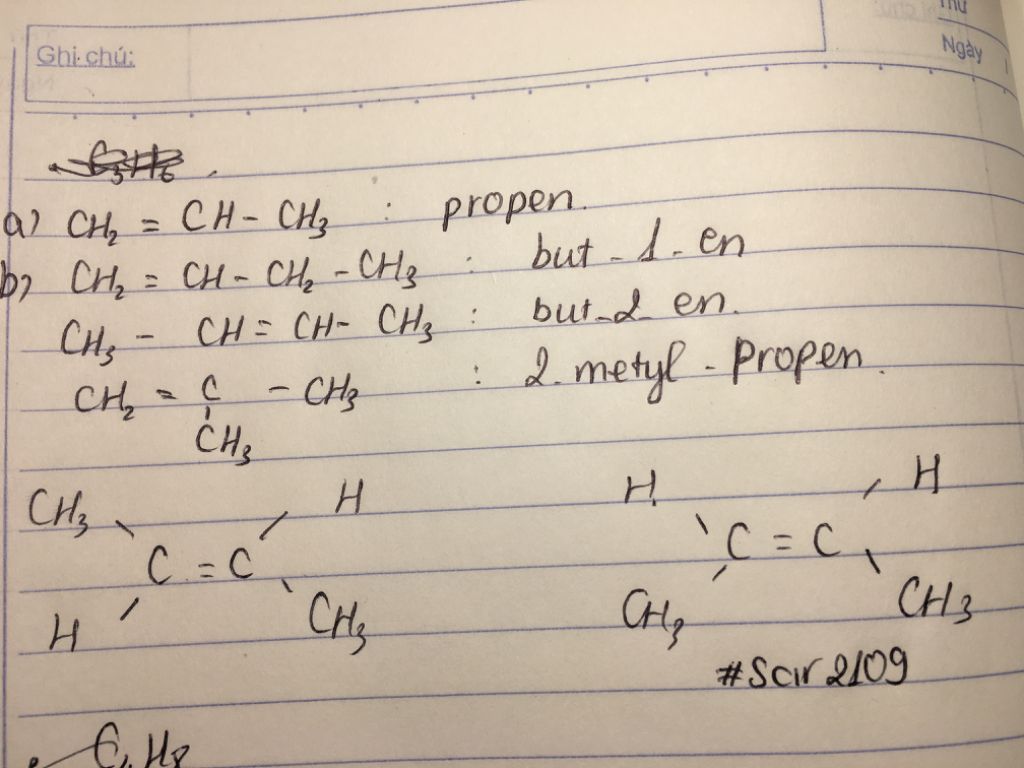 Thứ
Ghi chú:
Ngày
C₃H₆
a) CH₂ = CH - CH₃ : propen.
b) CH₂ = CH - CH₂ - CH₃ : but - 1 - en
CH₃ - CH = CH - CH₃ : but - 2 - en.
CH₂ = C - CH₃ : 2 - metyl - propen.
CH₃
CH₃ H H H
C = C C = C
H CH₃ CH₃ CH₃
#Scir2109